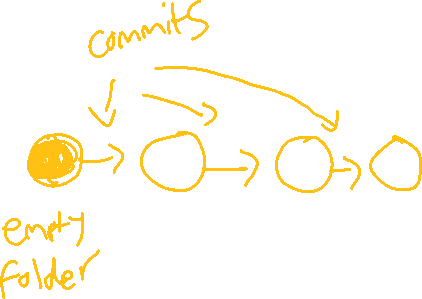 commits
empty
folder